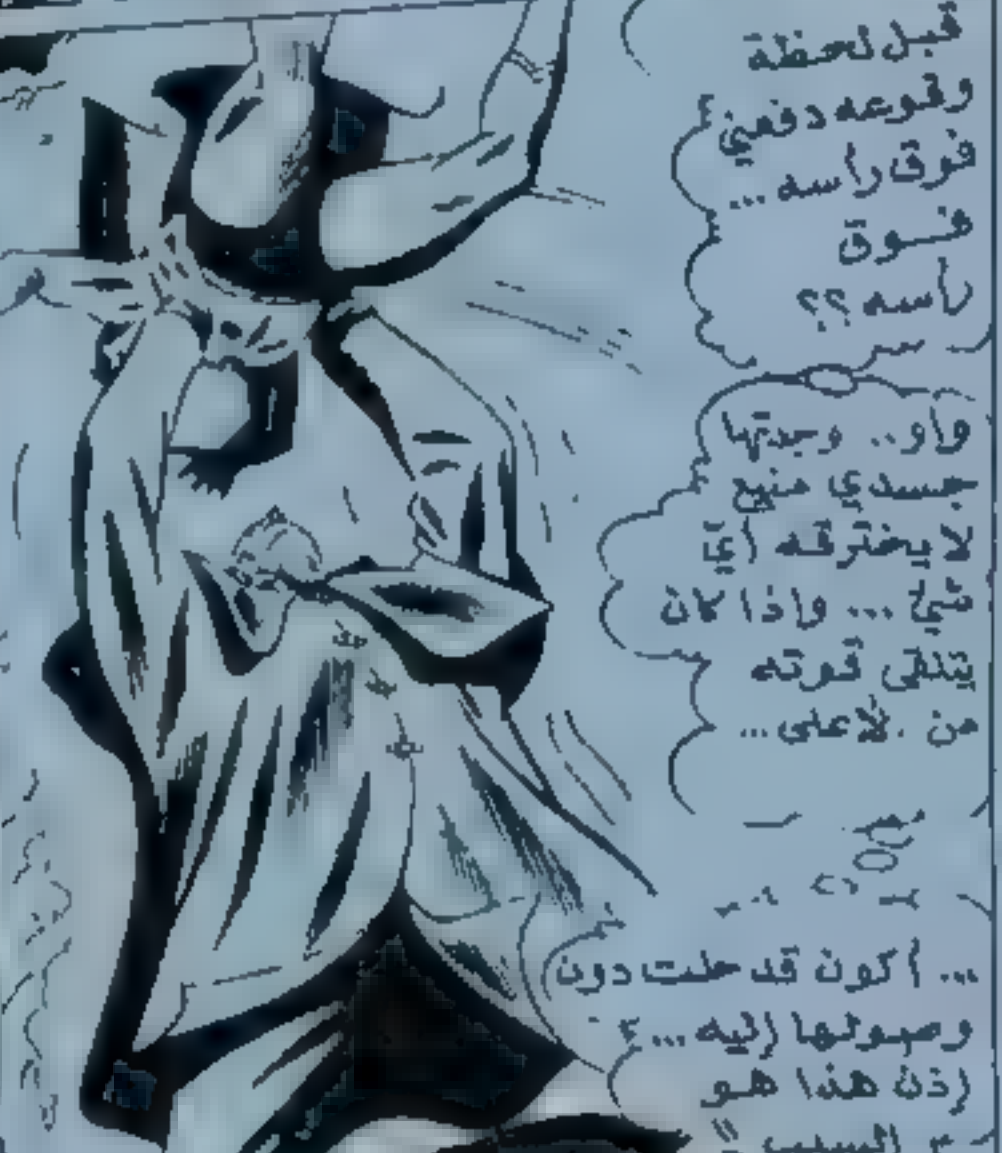 قبل لحظة
وقوعه دفعني
فوق رأسه ...
فوق
رأسه ؟؟
واو.. وجدتها
جسدي منيع
لا يخترقه أيّ
شيئ ... واذا كان
يتلقى قوته
من الأعلى ...
... أكون قد حلت دون
وصولها إليه ...؟
إذن هذا هو
السبب !!